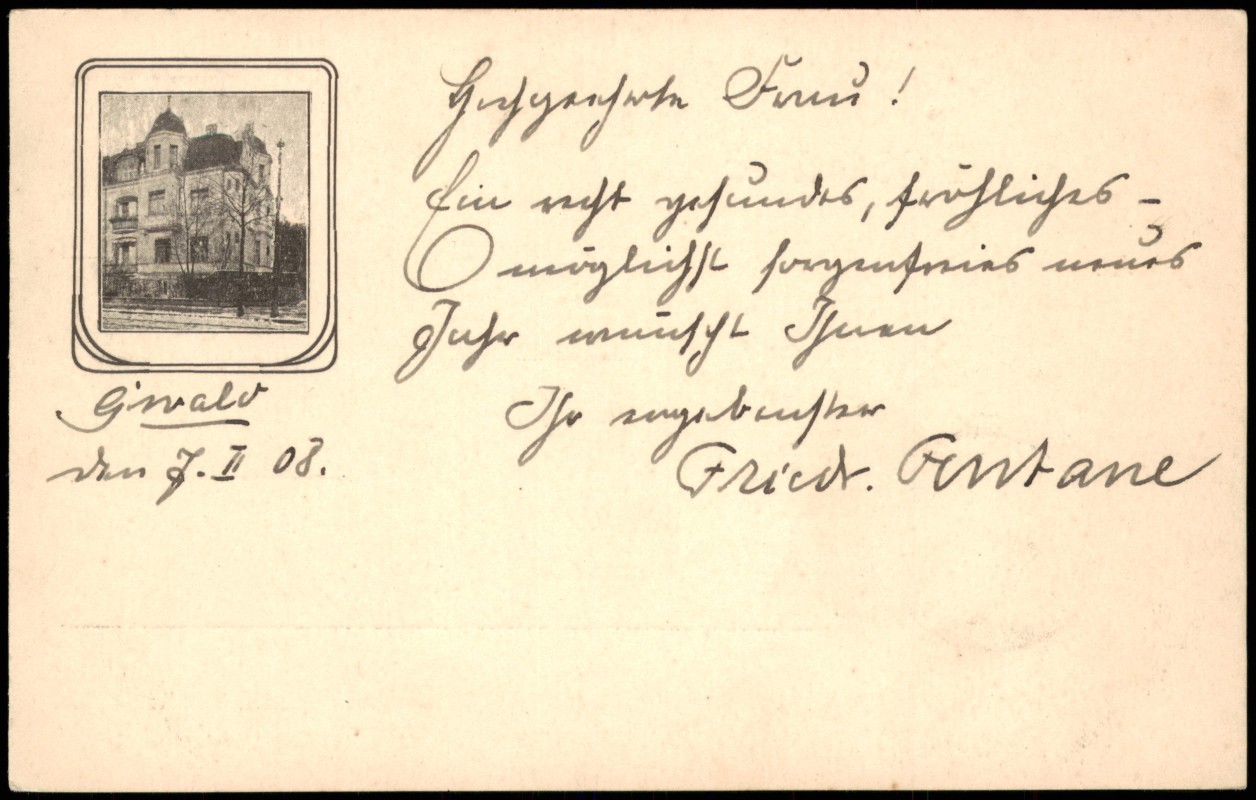 Hochgeehrte Frau!
Ein recht gesundes, fröhliches -
möglichst sorgenfreies neues
Jahr wünscht Ihnen
Ihr ergebenster
Friedr. Fontane
Gr̅wald
den 7. II 08.